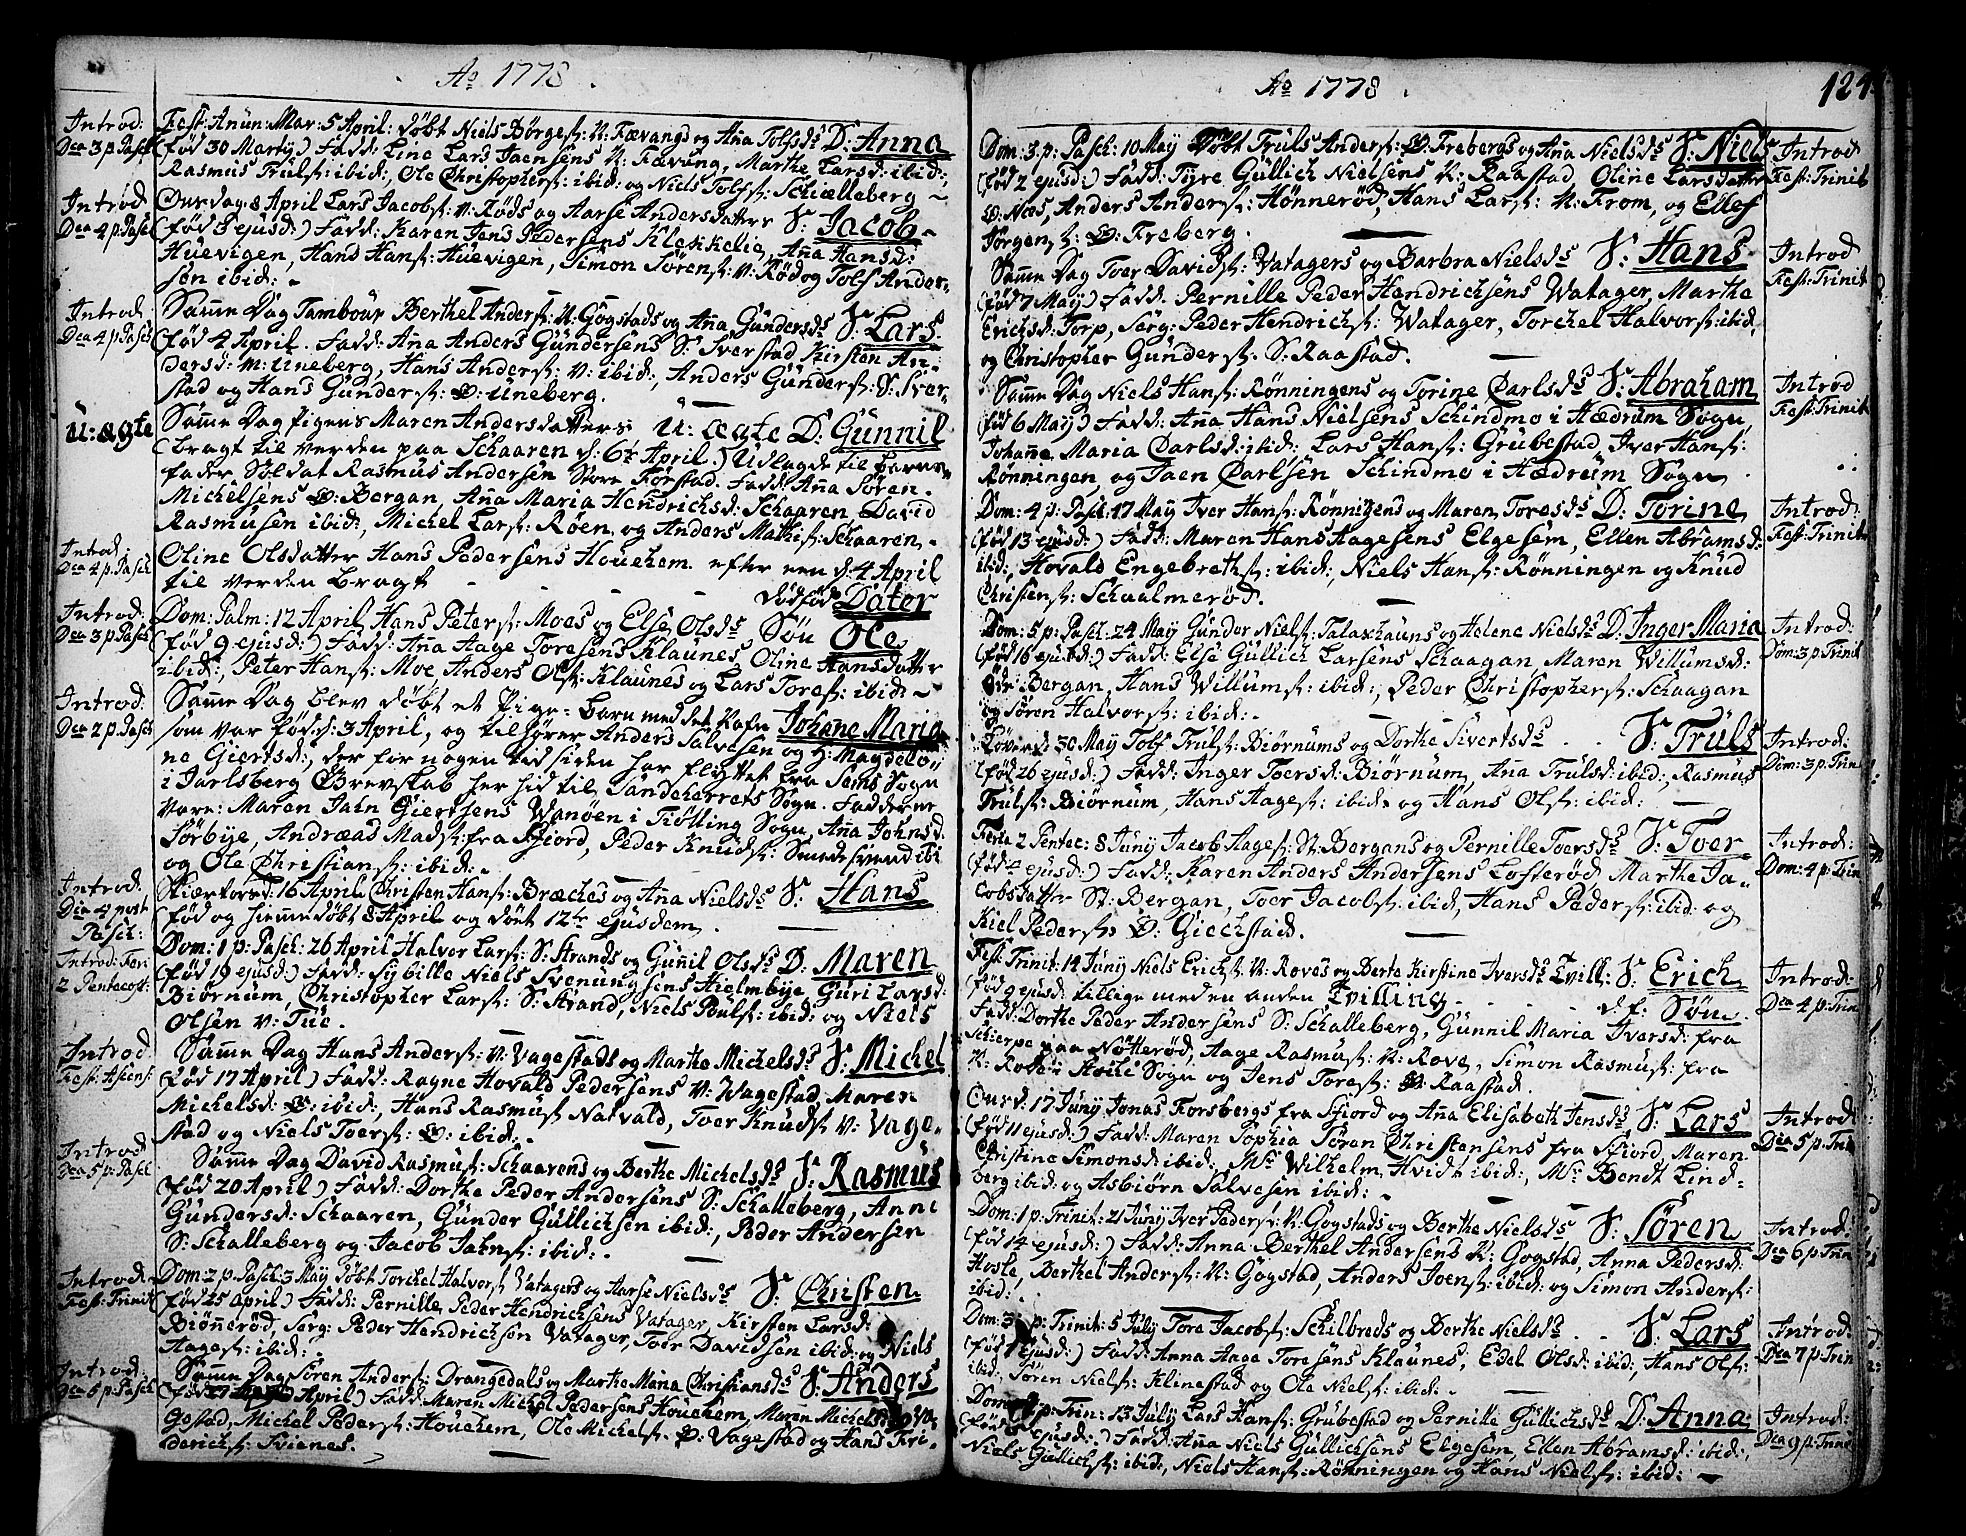 Ao 1778.
Introd:
Dca 3 p: Pasch
Fest: Anun: Mar: 5 April: døbt Niels Børges: N: Fævangs og Aña Tolfsds D: Anna
(fød 30 Marty) Fadd: Line Lars Jaensens N: Fævang, Marthe Larsd: ibid:,
Rasmus Truls: ibid:, Ole Christophers: ibid: og Niels Tolfs: Schielleberg
Introd
Dca 4 p: Pasc
Onsdag: 8 April Lars Jacobs: V: Røds og Aarse Andersdatter S: Jacob
(fød 3 ejusd:) Fadd: Karen Jens Pedersens Klekkelia, Aña Hansd:
Huevigen, Hans Hans: Huevigen, Simon Sørens: V: Rød og Tolf Ander-
sen ibid:
Introd
Dca 4 p: Pasc
Samme Dag Tambour Berthel Anders: N: Gogstads og Aña Gundersds S: Lars
(fød 4 April. Fadd: Aña Anders Gundersens S: Iverstad Kirsten An-
dersd: M: Uneberg, Hans Anders: V: ibid:, Anders Gunders: S: Iver-
stad og Hans Gunders: Ø: Uneberg.
U: ægte
Samme Dag Pigens Maren Andersdatters U: ægte D: Gunnil
(bragt til verden paa Schaaren d: 6te April.) Udlagde til barne-
fader Soldat Rasmus Andersen Store Førstad. Fadd: Aña Søren
Michelsens Ø: Bergan, Aña Maria Hendrichsd: Schaaren David
Rasmusen ibid:, Michel Lars: Røen, og Anders Mathis: Schaaren.
Introd
Dca 4 p: Pasch
Oline Olsdatter Hans Pedersens Houehem efter een d: 4 April
til verden bragt dødfød Dater
Introd:
Dca 3 p: Pasch
Dom: Palm: 12 April Hans Peters: Moes og Else Olsds Søn Ole
(fød 9 ejusd:) Fadd: Aña Aage Toresens Klaunes Oline Hansdatter
ibid:, Peter Hans: Moe, Anders Ols: Klaunes og Lars Tores: ibid:
Introd:
Dca 2 p: Pasch
Samme Dag blev døbt et Pige-Barn med det Nafn Johane Maria
som var fød d: 3 April, og tilhører Anders Salvesen og H: Magdele-
ne Giertsd:, der for nogen tid siden har flyttet fra Sems Sogn
i Jarlsberg Grevskab her hid til Sandeherrets Sogn. Fadderne
vare: Maren Jahn Giertsens Wanøen i Tiølling Sogn, Aña Johnsd
Sørbye, Andreas Mads: fra Fjord, Peder Knuds: Smedesvend ibi
og Ole Christians: ibid:
Introd:
Die 4 post
Pasch:
Skiertorsd: 16 April Christen Hans: Bræches og Aña Nielsds S: Hans
fød og hjemmedøbt 8 April og døet 12te ejusdem
Introd: Feri
2 Pentecost:
Dom: 1 p: Pasch: 26 April Halvor Lars: S: Strands og Gunnil Olsds D: Maren
(fød 19 ejusd:) Fadd: Sybille Niels Svenungsens Hielmbye Guri Larsd:
Biørnum, Christopher Lars: S: Strand, Niels Pouls: ibid: og Niels
Olsen V: Tue.
Introd
Fest: Ascens:
Samme Dag Hans Anders: V: Vagestads og Marthe Michelsds S: Michel
(fød 17 April) Fadd: Ragne Hovald Pedersens V: Wagestad, Maren
Michelsd: Ø: ibid:, Hans Rasmus: Natvald, Tver Knuds: V: Vage-
stad og Niels Toers: Ø: ibid:
Introd
Dca 5 p: Pasch
Samme Dag David Rasmus: Schaarens og Berthe Michelsds S: Rasmus
(fød 20 April) Fadd: Dorthe Peder Andersens S: Schalleberg, Anne
Gundersd: Schaaren, Gunder Gullichsen ibid:, Peder Andersen
S: Schalleberg og Jacob Jahns: ibid:
Introd
Fest: Trinit
Dom: 2 p: Pasch: 3 May døbt Torchel Halvors: Vatagers og Aarse Nielsds S: Christen
(fød 25 April) Fadd: Pernille Peder Hendrichsens Vatager, Kirsten Larsd:
Biønnerød, Serg: Peder Hendrichsen Vatager, Toer Davidsen ibid: og Niels
Aages: ibid:
Introd:
Dca 5 p: Pasch
Samme Dag Søren Anders: Drangedals og Marthe Maria Christiansds S: Anders
(fød 27 April) Fadd: Maren Michel Pedersens Houehem, Maren Michelsd: Ø: Va-
gestad, Michel Peders: Houehem, Ole Michels: Ø: Vagestad og Hans Fri-
derichs: Svienes.
Ao 1778. 124
Dom: 3 p: Pasch: 10 May døbt Truls Anders: Ø: Frebergs og Aña Nielsds S: Niels
(fød 2 ejusd:) Fadd: Tyre Gullich Nielsens N: Raastad, Oline Larsdatter
Ø: Næs, Anders Anders: Hønnerød, Hans Lars: N: From, og Ellef
Jørgens: Ø: Freberg.
Introd
Fest: Trinit
Samme Dag Toer Davids: Vatagers og Barbra Nielsds S: Hans
(fød 7 May) Fadd: Pernille Peder Hendrichsens Watager, Marthe
Erichsd: Torp, Serg: Peder Hendrichs: Watager, Torchel Halvors: ibid,
og Christopher Gunders: S: Raastad.
Introd
Fest: Trinit
Samme Dag Niels Hans: Rønningens og Torine Carlsds S: Abraham
(fød 6 May) Fadd: Aña Hans Nielsens Schindmo i Hædrum Sogn
Johañe Maria Carlsd: ibid: Lars Hans: Grubestad, Iver Hans:
Rønningen, og Jaen Carlsen Schindmo i Hædrum Sogn
Introd
Fest: Trinit
Dom: 4 p: Pasch: 17 May Iver Hans: Rønningens og Maren Toresds D: Torine
(fød 13 ejusd:) Fadd: Maren Hans Aagesens Elgesem, Ellen Abramsd:
ibid:, Hovald Engebreths: ibid:, Niels Hans: Rønningen og Knud
Christens: Schaalmerød.
Introd:
Fest: Trinit
Dom: 5 p: Pasch: 24 May Gunder Niels: Talaxhauns og Helene Nielsds D: Inger Maria
(fød 16 ejusd:) Fadd: Else Gullich Larsens Schaagan, Maren Willumsd:
Ødr: Bergan, Hans Willums: ibid:, Peder Christophers: Schaagan
og Søren Halvors: ibid:
Introd:
Dom: 3 p: Trinit
Løverd: 30 May Tolf Truls: Biørnums og Dorthe Sivertsds S: Truls
(fød 26 ejusd:) Fadd: Inger Toersd: Biørnum, Aña Trulsd: ibid:, Rasmus
Truls: Biørnum, Hans Aages: ibid: og Hans Ols: ibid:
Introd:
Dom: 3 p: Trin
Feria 2 Pentec: 8 Juny Jacob Aages: St: Bergans og Pernille Toersds S: Toer
(fød ejusd:) Fadd: Karen Anders Andersens Lofterød Marthe Ja-
cobsdatter St: Bergan, Toer Jacobs: ibid, Hans Peders: ibid: og
Kiel Peders: Ø: Giechstad.
Introd:
Dom: 4 p: Trin
Fest: Trinit: 14 Juny Niels Erichs: N: Roves og Berte Kirstine Iversds Tvill: S: Erich
(fød 9 ejusd: tillige med en anden Tvilling d: f: Søn
Fadd: Dorthe Peder Andersens S: Schalleberg, Gunnil Maria Iversd: fra
Schierpe paa Nøtterød, Aage Rasmus: N: Rove, Simon Rasmus: fra
N: Rove i Sogn og Jens Tores: Ø: Raastad.
Introd:
Dca 4 p: Trin
Onsd: 17 Juny Jonas Forsbergs fra Fjord og Aña Elisabeth Jensds S: Lars
(fød 11 ejusd:) Fadd: Maren Sophia Søren Christensens fra Fjord, Maren
Christine Simonsd: ibid:, Mr Wilhelm Hvidt ibid:, Mr Bendt Lind-
berg ibid: og Asbiørn Salvesen ibid:
Introd:
Dca 5 p: Trin
Dom: 1 p: Trinit: 21 Juny Iver Peders: N: Gogstads og Berthe Nielsds S: Søren
(fød 14 ejusd:) Fadd: Anna Berthel Andersens N: Gogstad, Anna Pedersd:
Hosle, Berthel Anders: N: Gogstad, Anders Joens: ibid: og Simon Anders:
ibid:
Introd:
Dca 6 p: Trin
Dom: 3 p: Trinit: 5 July Tore Jacobs: Schilbreds og Berthe Nielsds S: Lars
(fød 1 ejusd:) Fadd: Anna Aage Toresens Klaunes, Edel Olsd: ibid:, Hans Ols:
ibid: Søren Niels: Klinestad og Ole Niels: ibid:
Introd:
Dca 7 p: Trin
Dom: 4 p: Trin: 13 July Lars Hans: Grubestad og Pernille Gullichsds D: Anna
(fød ejusd:) Fadd: Aña Niels Gullichsens Elgesem, Ellen Abramsd: ibid:,
Niels Gullichs: ibid:, Niels Hans: Rønningen og Hans Niels: ibid:
Introd:
Dca 9 p: Trin